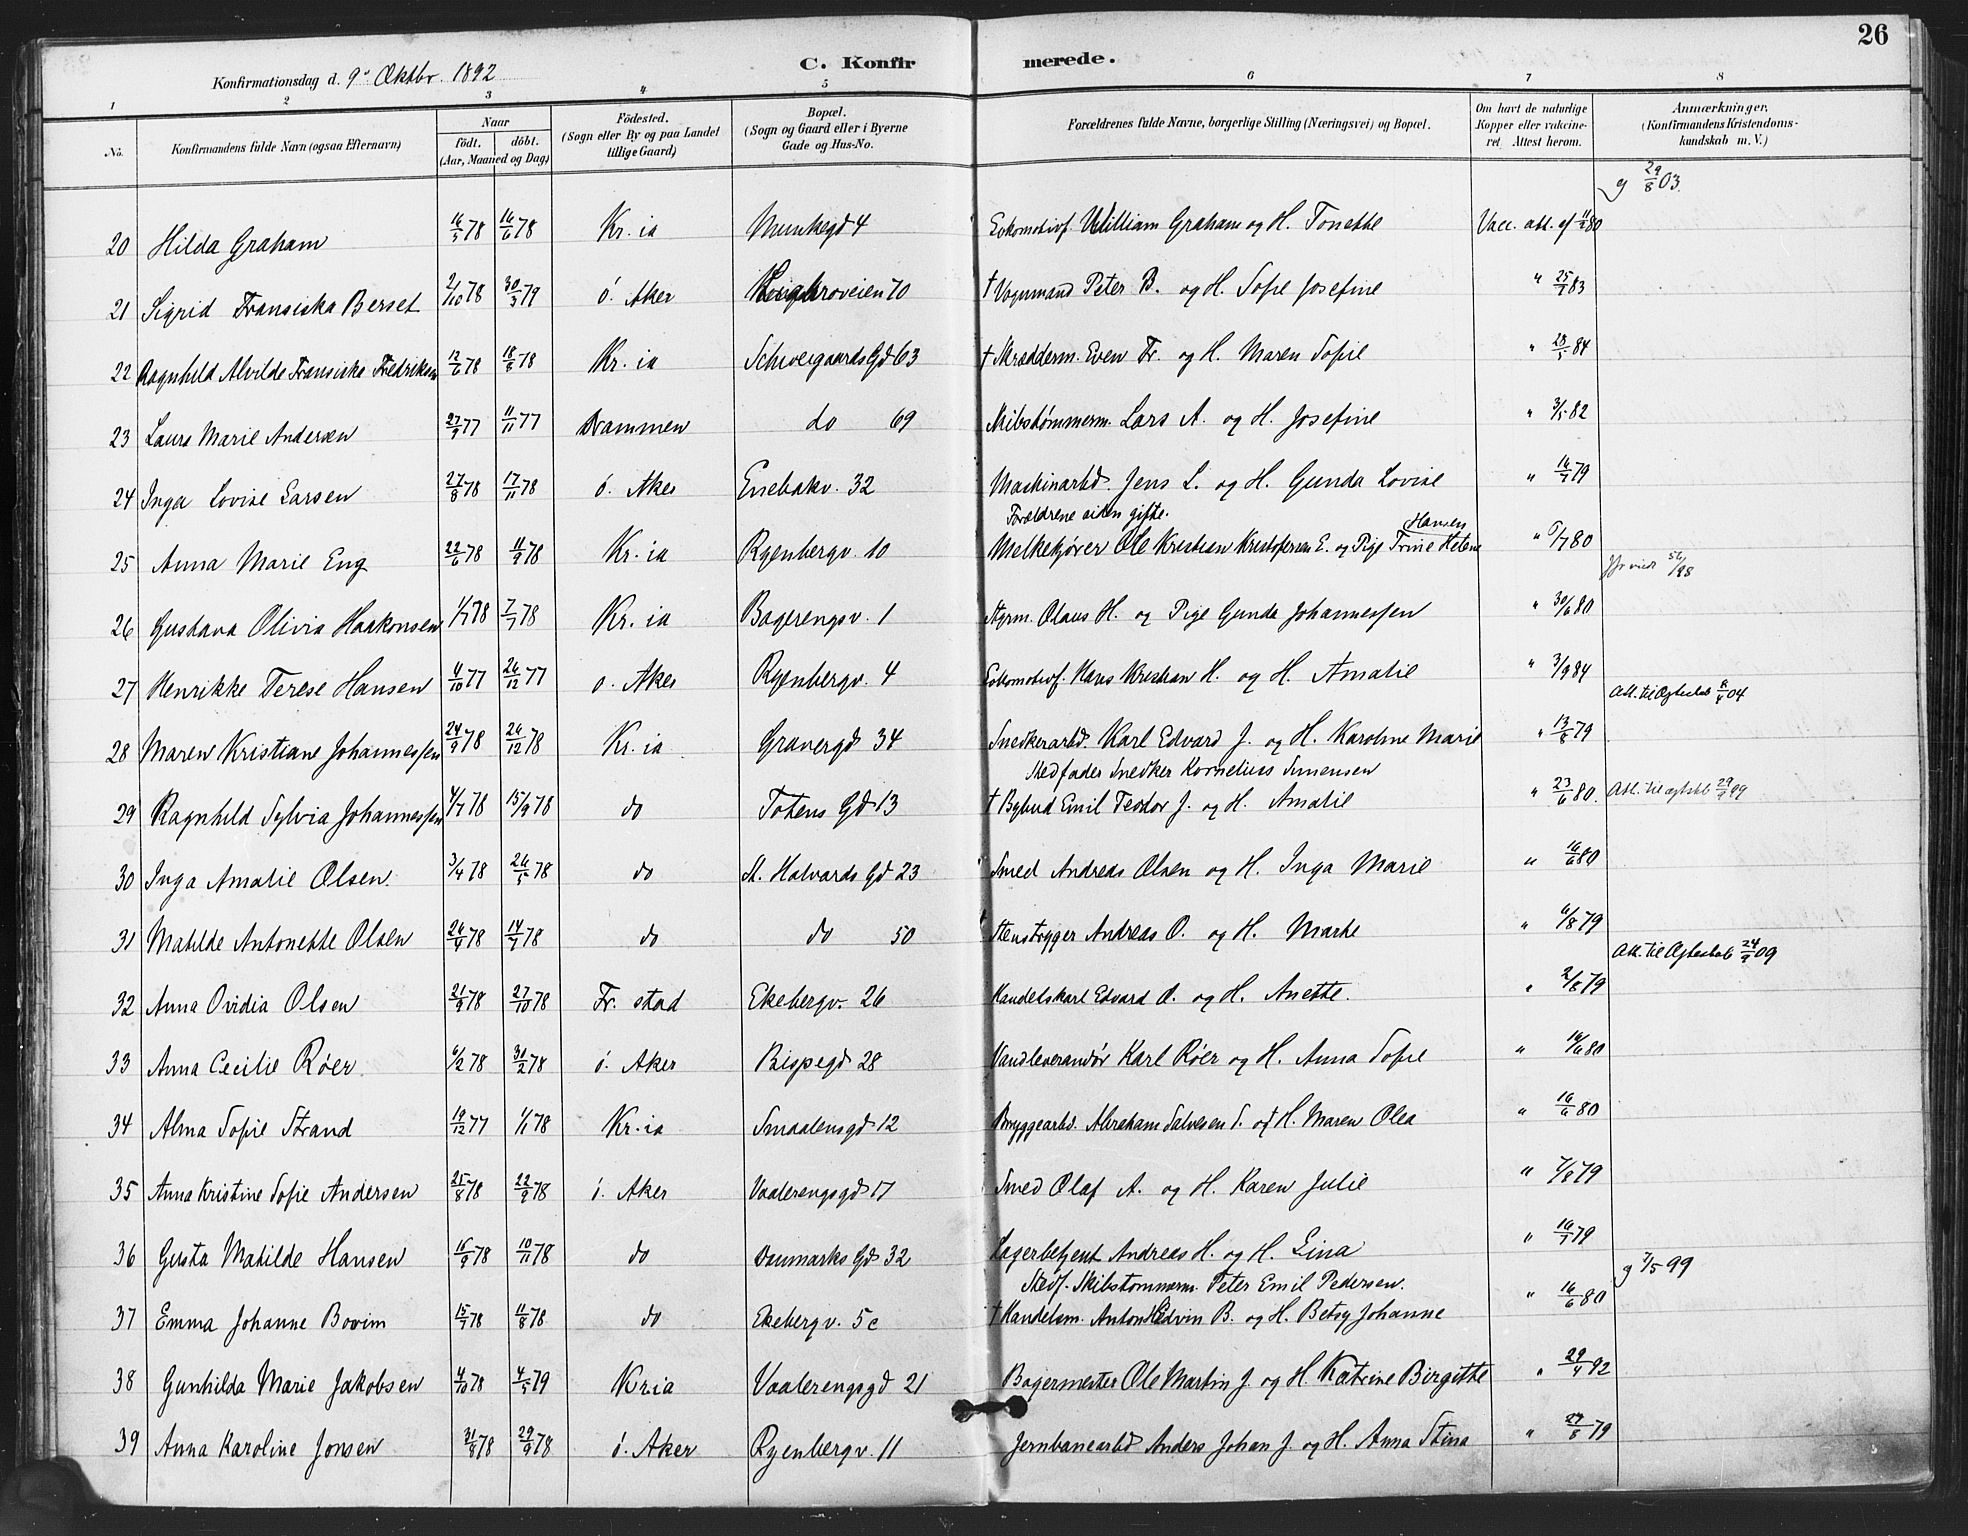 26
Konfirmationsdag d. 9de Oktbr. 1892
C. Konfirmerede.
1 2 3 4 5 6 7 8
No. Konfirmandens fulde Navn (ogsaa Efternavn) Naar født. døbt. (Aar, Maaned og Dag) Fødested. (Sogn eller By og paa Landet tillige Gaard) Bopæl. (Sogn og Gaard eller i Byerne Gade og Hus-No. Forældrenes fulde Navne, borgerlige Stilling (Næringsvei) og Bopæl. Om havt de naturlige Kopper eller vakcineret. Attest herom. Anmærkninger. (Konfirmandens Kristendomskundskab m. V.)
g 29/8 03.
20 Hilda Graham 16/5 78 16/6 78 Kr.ia Munkegd 4 Lokomotivf. William Graham og H. Tonette Vacc. att. af 80
21 Sigrid Fransiska Berset 2/10 78 30/3 79 ö. Aker 70 † Vognmand Peter B. og H. Sofie Josefine " 25/7 83
22 Ragnhild Alvilde Fransiska Fredriksen 12/6 78 18/8 78 Kr.ia Schweigaards Gd 63 † Skrædderm. Even Fr. og H. Maren Sofie " 28/5 84
23 Laura Marie Andersen 27/9 77 11/11 77 Drammen do 69 Skibstømmerm. Lars A. og H. Josefine " 3/5 82
24 Inga Lovise Larsen 27/8 78 17/11 78 ö. Aker Enebakv. 32 Maskinarbd. Jens L. og H. Gunda Lovise " 16/7 79
Forældrene siden gifte. Hansen
25 Anna Marie Eng 22/6 78 11/9 78 Kr.ia Ryenbergv. 10 Melkekjører Ole Kristian Kristofersen E. og Pige Trine Helene " 6/7 80
26 Gustava Olivia Haakonsen 1/7 78 7/7 78 Kr.ia Bagerengsv. 1 Styrm. Olaus H. og Pige Gunda Johannessen " 30/6 80
27 Henrikke Terese Hansen 11/10 77 26/12 77 ö. Aker Ryenbergv. 4 Lokomotivf. Hans Kristian H. og H. Amalie " 3/9 84
Att. til Ægteskab 04
28 Maren Kristiane Johannessen 24/9 78 26/12 78 Kr.ia Gravergd 34 Snedkerarbd. Karl Edvard J. og H. Karoline Marie " 13/8 79
Stedfader Snedker Kornelius Simensen
29 Ragnhild Sylvia Johannessen 4/7 78 15/9 78 do Totens Gd 13 † Bybud Emil Teodor J. og H. Amalie " 23/6 80. Att. til ægtsk. 29/9 99
30 Inga Amalie Olsen. 3/4 78 26/5 78 do St. Halvards Gd 23 Smed Andreas Olsen og H. Inga Marie " 16/6 80
31 Matilde Antonette Olsen 26/4 78 14/7 78 do do 50 Stenstryger Andreas O. og H. Marte " 6/8 79
Att. til Ægteskab 24/9 09
32 Anna Ovidia Olsen 21/9 78 27/10 78 Fr. stad Ekebergv. 26 Handelskarl Edvard O. og H. Anette. " 2/8 79
33 Anna Cecilie Röer. 6/2 78 31/2 78 ö. Aker Bispegd 28 Vandleverandör Karl Röer og H. Anna Sofie " 16/6 80
34 Alma Sofie Strand 19/12 77 1/1 78 Kr.ia Smaalensgd 12 Bryggearbd. Abraham Salvesen S. og H. Maren Olea " 16/6 80
35 Anna Kristine Sofie Andersen 25/8 78 22/9 78 ö. Aker Vaalerengsgd 17 Smed Olaf A. og H. Karen Julie " 7/8 79
36 Gusta Matilde Hansen 15/9 78 10/11 78 do Danmarks Gd 32 Lagerbetjent Andreas H. og H. Lina " 16/7 79
Stedf. Skibstømmerm. Peter Emil Pedersen. g 7/5 99
37 Emma Johanne Bovim 15/7 78 11/8 78 do Ekebergv. 5c † Handelsm. Anton Edvin B. og H. Betsy Johanne " 16/6 80
38 Gunhilda Marie Jakobsen 4/10 78 4/5 79 Kria Vaalerengsgd 21 Bagermester Ole Martin J. og H. Katrine Birgitte " 29/4 92
39 Anna Karoline Jonsen 31/8 78 29/9 78 ö. Aker Ryenbergv. 11 Jernbanearbd Anders Johan J. og H. Anna Stina " 27/8 79